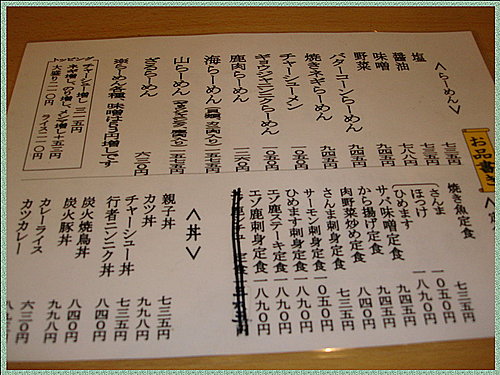 お品書き
<らーめん>
塩 七三五円
醤油 七三五円
味噌 七八八円
野菜 九四五円
バターコーンらーめん 九四五円
焼きネギらーめん 九四五円
チャーシューメン 一〇五〇円
ギョウジャニンニクらーめん 一〇五〇円
鹿肉らーめん
海らーめん
山らーめん
ざるらーめん
楽らーめん各種、味噌は53円増しです
トッピング
チャーシュー増し 三一五円
ネギ増し、のり増し、メンマ増し 十五三円
大盛り二一〇円 ライス二一〇円
焼き魚定食
さんま 七三五円
ほっけ 一〇五〇円
ひめます 一八九〇円
サバ味噌定食 九四五円
から揚げ定食 九四五円
肉野菜炒め定食 八四〇円
さんま刺身定食 七三五円
サーモン刺身定食 一〇五〇円
ひめます刺身定食 一八九〇円
エゾ鹿ステーキ定食 一八九〇円
エゾ鹿刺身定食 一八九〇円
<丼>
親子丼 七三五円
カツ丼 九九八円
チャーシュー丼 七三五円
行者ニンニク丼 八四〇円
炭火焼鳥丼 八四〇円
炭火豚丼 九九八円
カレーライス 六三〇円
カツカレー